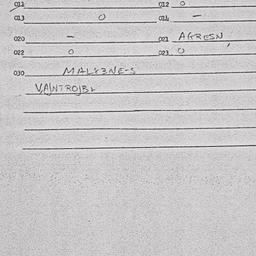 011 012 0
013 0 014 -
020 - 021 AGRESN,
022 0 023 0
030 MALEBNE-S
VANTROJBL